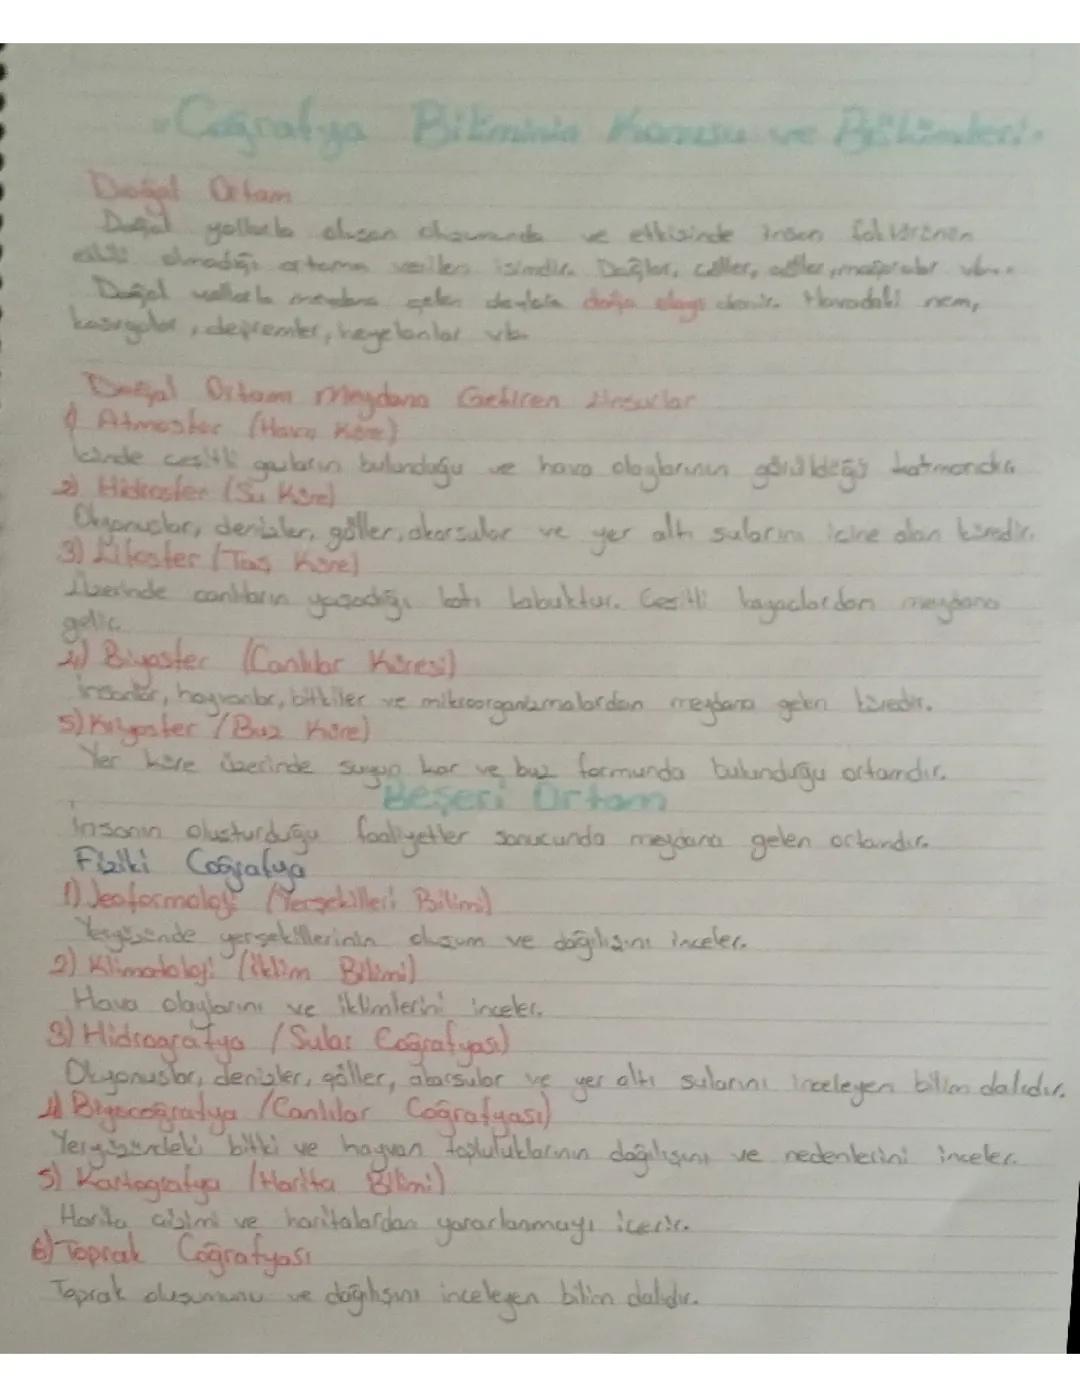 Coğrafya Biliminin Konusu ve Bölümleri
Doğal Ortam
Doğal yollarla oluşan oluşumunda ve etkisinde insan faktörünün
etkili olmadığı ortama verilen isimdir. Dağlar, çöller, göller, mağaralar vb...
Doğal yollarla meydana gelen olaylara doğa olayı denir. Havadaki nem,
kasırgalar, depremler, heyelanlar vb.
Doğal Ortamı Meydana Getiren Unsurlar
1) Atmosfer (Hava Küre)
İçinde çeşitli gazların bulunduğu ve hava olaylarının görüldüğü katmandır.
2) Hidrosfer (Su Küre)
Okyanuslar, denizler, göller, akarsular ve yer altı sularını içine alan küredir.
3) Litosfer (Taş Küre)
Üzerinde canlıların yaşadığı katı kabuktur. Çeşitli kayaçlardan meydana
gelir.
4) Biyosfer (Canlılar Küresi)
İnsanlar, hayvanlar, bitkiler ve mikroorganizmalardan meydana gelen küredir.
5) Kriyosfer (Buz Küre)
Yer küre üzerinde suyun kar ve buz formunda bulunduğu ortamdır.
Beşeri Ortam
İnsanın oluşturduğu faaliyetler sonucunda meydana gelen ortamdır.
Fiziki Coğrafya
1) Jeoformoloji (Yerşekilleri Bilimi)
Yeryüzünde yerşekillerinin oluşum ve dağılışını inceler.
2) Klimatoloji (İklim Bilimi)
Hava olaylarını ve iklimlerini inceler.
3) Hidrografya (Sular Coğrafyası)
Okyanuslar, denizler, göller, akarsular ve yer altı sularını inceleyen bilim dalıdır.
4) Biyocoğrafya (Canlılar Coğrafyası)
Yeryüzündeki bitki ve hayvan topluluklarının dağılışını ve nedenlerini inceler.
5) Kartografya (Harita Bilimi)
Harita çizimi ve haritalardan yararlanmayı içerir.
6) Toprak Coğrafyası
Toprak oluşumunu ve dağılışını inceleyen bilim dalıdır.